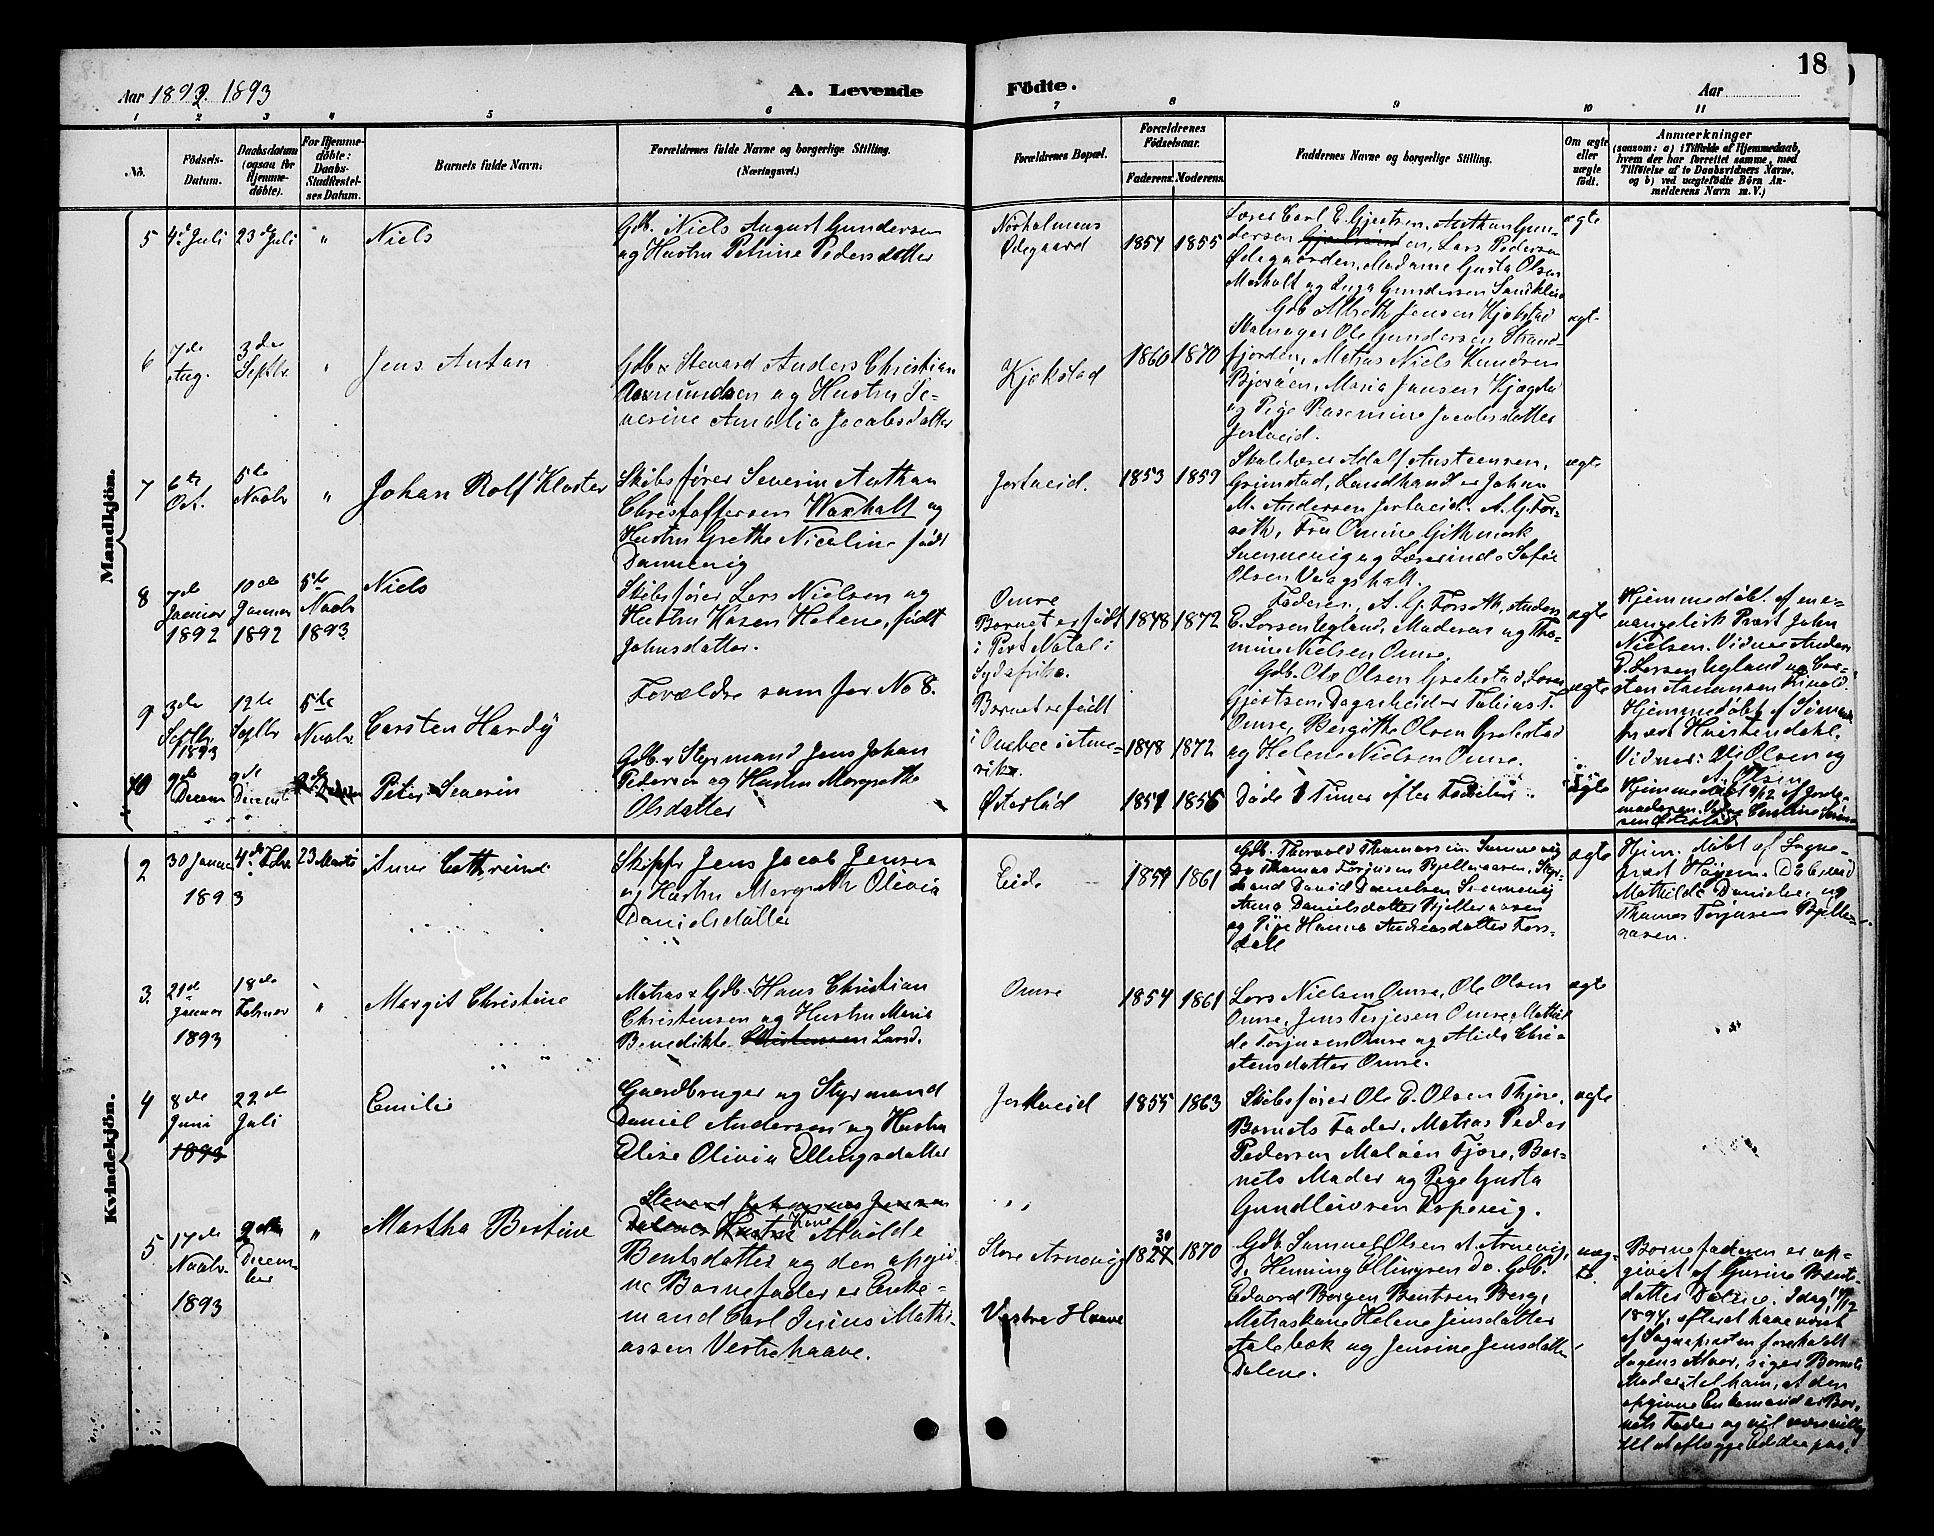 18
Aar 1892. 1893
A. Levende
Födte.
Aar
1 2 3 4 5 6 7 8 9 10 11
No.
Födsels-
Datum.
Daabsdatum
(ogsaa for
Hjemme-
döbte).
For Hjemme-
döbte:
Daabs-
Stadfæstel-
ses Datum.
Barnets fulde Navn.
Forældrenes fulde Navne og borgerlige Stilling.
(Næringsvei.)
Forældrenes Bopæl.
Forældrenes
Födselsaar.
Faderens. Moderens.
Faddernes Navne og borgerlige Stilling.
Om ægte
eller
uægte
födt.
Anmærkninger
(saasom: a) i Tilfælde af Hjemmedaab,
hvem der har forrettet samme, med
Tilföielse af to Daabsvidners Navne,
og b) ved uægtefödte Börn An-
melderens Navn m. V.)
Mandkjön.
5
4de Juli
23de Juli
"
Niels
Gdb. Niels August Gundersen
og Hustru Petrine Pedersdatter
Norholmens
Ødegaard
1854 1855
Lærer Carl E. Gjertsen, Anthon Gun-
dersen, Lars Pedersen
Ødegaarden, Madame Gusta Olsen
Morholt og Inga Gundersen Sandkleiv
ægte
6
7de
Aug.
3de
Septbr.
"
Jens Anton
Gdb. & Steward Anders Christian
Aasmundsen og Hustru Se-
verine Amalia Jacobsdatter
Kjökstad
1860 1870
Gdb. Jensen Kjökstad
Ole Gundersen Strand-
fjorden, Matros Niels Knudsen
Maria Jansen
og Pige Rasemine Jacobsdatter
Jortveid.
ægte
7
6te
Oct.
5te
Novbr.
"
Johan Rolf Kloster
Skibsfører Severin Anthon
Christoffersen Waxholt og
Hustru Grethe Nicoline født
Dannevig
Jortveid.
1853 1859
Skolelærer Adolf Austensen,
Grimstad, Landhandler Johan
M. Andersen Jortveid. A. G. For-
seth, Fru Omine Githmark
Svennevig og Lærerinde Sofie
Olsen Vaagsholt.
ægte
8
7de
Januar
1892
10de
Januar
1892
5te
Novbr
1893
Niels
Skibsfører Lars Nielsen og
Hustru Karen Helene, født
Johnsdatter.
Omre
Barnet er født
i Port Natal i
Sydafrika.
1848 1872
Faderen, A. G. Forseth, Anders
E. Larsen Egland, Moderen og Tho-
mine Nielsen Omre.
ægte
Hjemmedøbt af en e-
vangelisk Præst John
Nielsen. Vidner Anders
E. Larsen Egland og Car-
sten
9
3de
Septbr.
1893
12te
Septbr
5te
Novbr.
Carsten Hardy
Forældre som for No 8.
Barnet er født
i Quebec i Ame-
rika.
1848 1872
Gdb. Ole Olsen Grebstad,
Gjertsen, Dagarbeider Tobias T.
Omre, Bergithe Olsen Grebstad
og Helene Nielsen Omre.
ægte
Hjemmedøbt af Sømands-
præst
Vidner: Ole Olsen og
A. Olsen
10
9de
Decem
9de
Decemb
Peter Severin
Gdb. & Styrmand Jens Johan
Pedersen og Hustru Margrethe
Olsdatter
Østerstad
1851 1856
Døde 8 Timer efter Fødselen.
ægte
Hjemmedøbt 9/12 af Jorde-
moderen.
Kvindekjön.
2
30 Januar
1893
4de Febr
23 Marts
Anne Cathrine
Skipper Jens Jacob Jensen
og Hustru Margrethe Olivia
Danielsdatter
Eide
1859 1861
Gdb. Thorvald Thomassen Svennevig
Do Thomas Torjusen Bjelleraasen, Styr-
mand David Danielsen Svennevig
Anna Danielsdatter Bjelleraasen
og Pige Hanna Andreasdatter Fors-
dal
ægte
Hjem. døbt af Sogne-
præst
Mathilde Danielsen og
Thomas Torjusen Bjelle-
raasen.
3.
21de
Januar
1893
18de
Februar
"
Margit Christine
Matros & Gdb. Hans Christian
Christensen og Hustru Maria
Benedikte Christensen Lund.
Omre
1854 1861
Lars Nielsen Omre, Ole Olsen
Omre, Jens Terjesen Omre, Mathil-
de Torjusen Omre og Alida Chri-
stensdatter Omre.
ægte
4
8de
Juni
1893
22de
Juli
Emilie
Gaardbruger og Styrmand
Daniel Andersen og Hustru
Elise Olivia Ellingsdatter
Jortveid
1855 1863
Skibsfører Ole E. Olsen Thjore,
Barnets Fader, Matros Peder
Pedersen Molvien Tjore, Bar-
nets Moder og Pige Gusta
Gundersen Espevig.
ægte
5
17de
Novbr.
1893
2den
Decem-
ber
"
Martha Bertine
Steward Johannes Jensen
Dalenes Hustru Alvilde
Bentsdatter og den opgiv-
ne Barnefader er Enke-
mand Carl Julius Mathi-
assen Vestrehaave.
Store Arnevig
Vestre Haave
30
1827 1870
Gdb. Samuel Olsen St. Arnevig,
Do Henning Ellingsen do. Gdb.
Edvard Bergen Bentsen Berg,
Matroskone Helene Jensdatter
Aalebæk og Jensine Jensdatter
Dalene.
uæg-
te
Barnefaderen er op-
givet af Gurine Bents-
datter Dalene. Idag, 14/12
1894, efterat have været
af Sognepræsten foreholdt
Sagens Alvor, siger Barnets
Moder til ham, at den
opgivne Enkemand er Bar-
nets Fader og vil være villig
til at aflægge Ed derpaa.